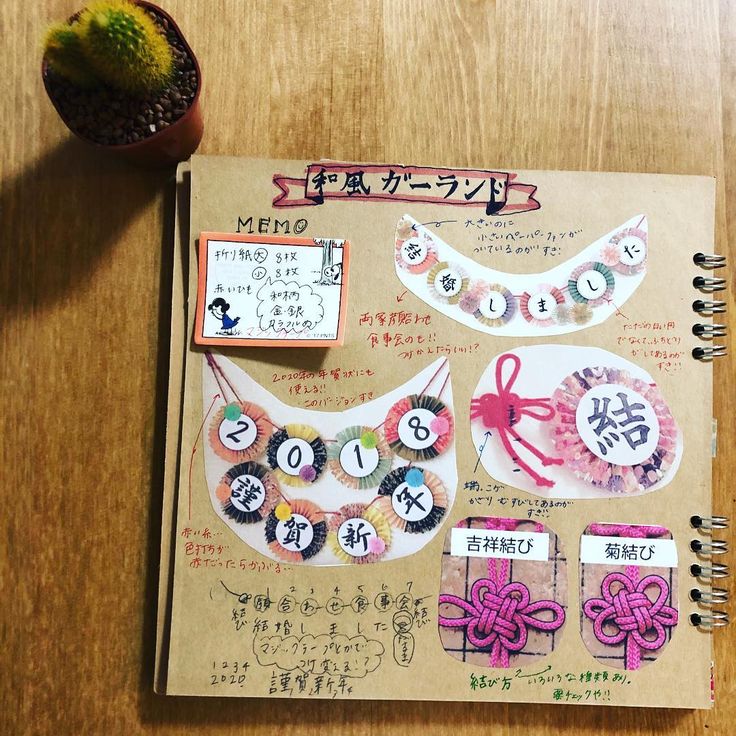 和風 ガーランド
MEMO
折り紙 大 8枚
小 8枚
赤いひも
和柄
金・銀
カラフルの
大きいのに
小さいペーパーファンが
ついているのがすき!
結婚しました
両家顔合わせ
食事会のも!!
つけかえたらいい!?
ただの白い円
でなくて、ふちどり
がしてあるのが
すき!!
2020年の年賀状にも
使える!!
このバージョンすき
2018
謹賀新年
結
端っこが
かざりむすびしてあるのが
すき!!
赤い糸…
色打ちが
赤だったらかぶる…
吉祥結び
菊結び
1 2 3 4 5 6 7
結び 顔合わせ食事会 結び
結婚しました
マジックテープとかで
つけ変える!?
1234
2020
謹賀新年
結び方 いろいろな種類あり。
要チェックや!!